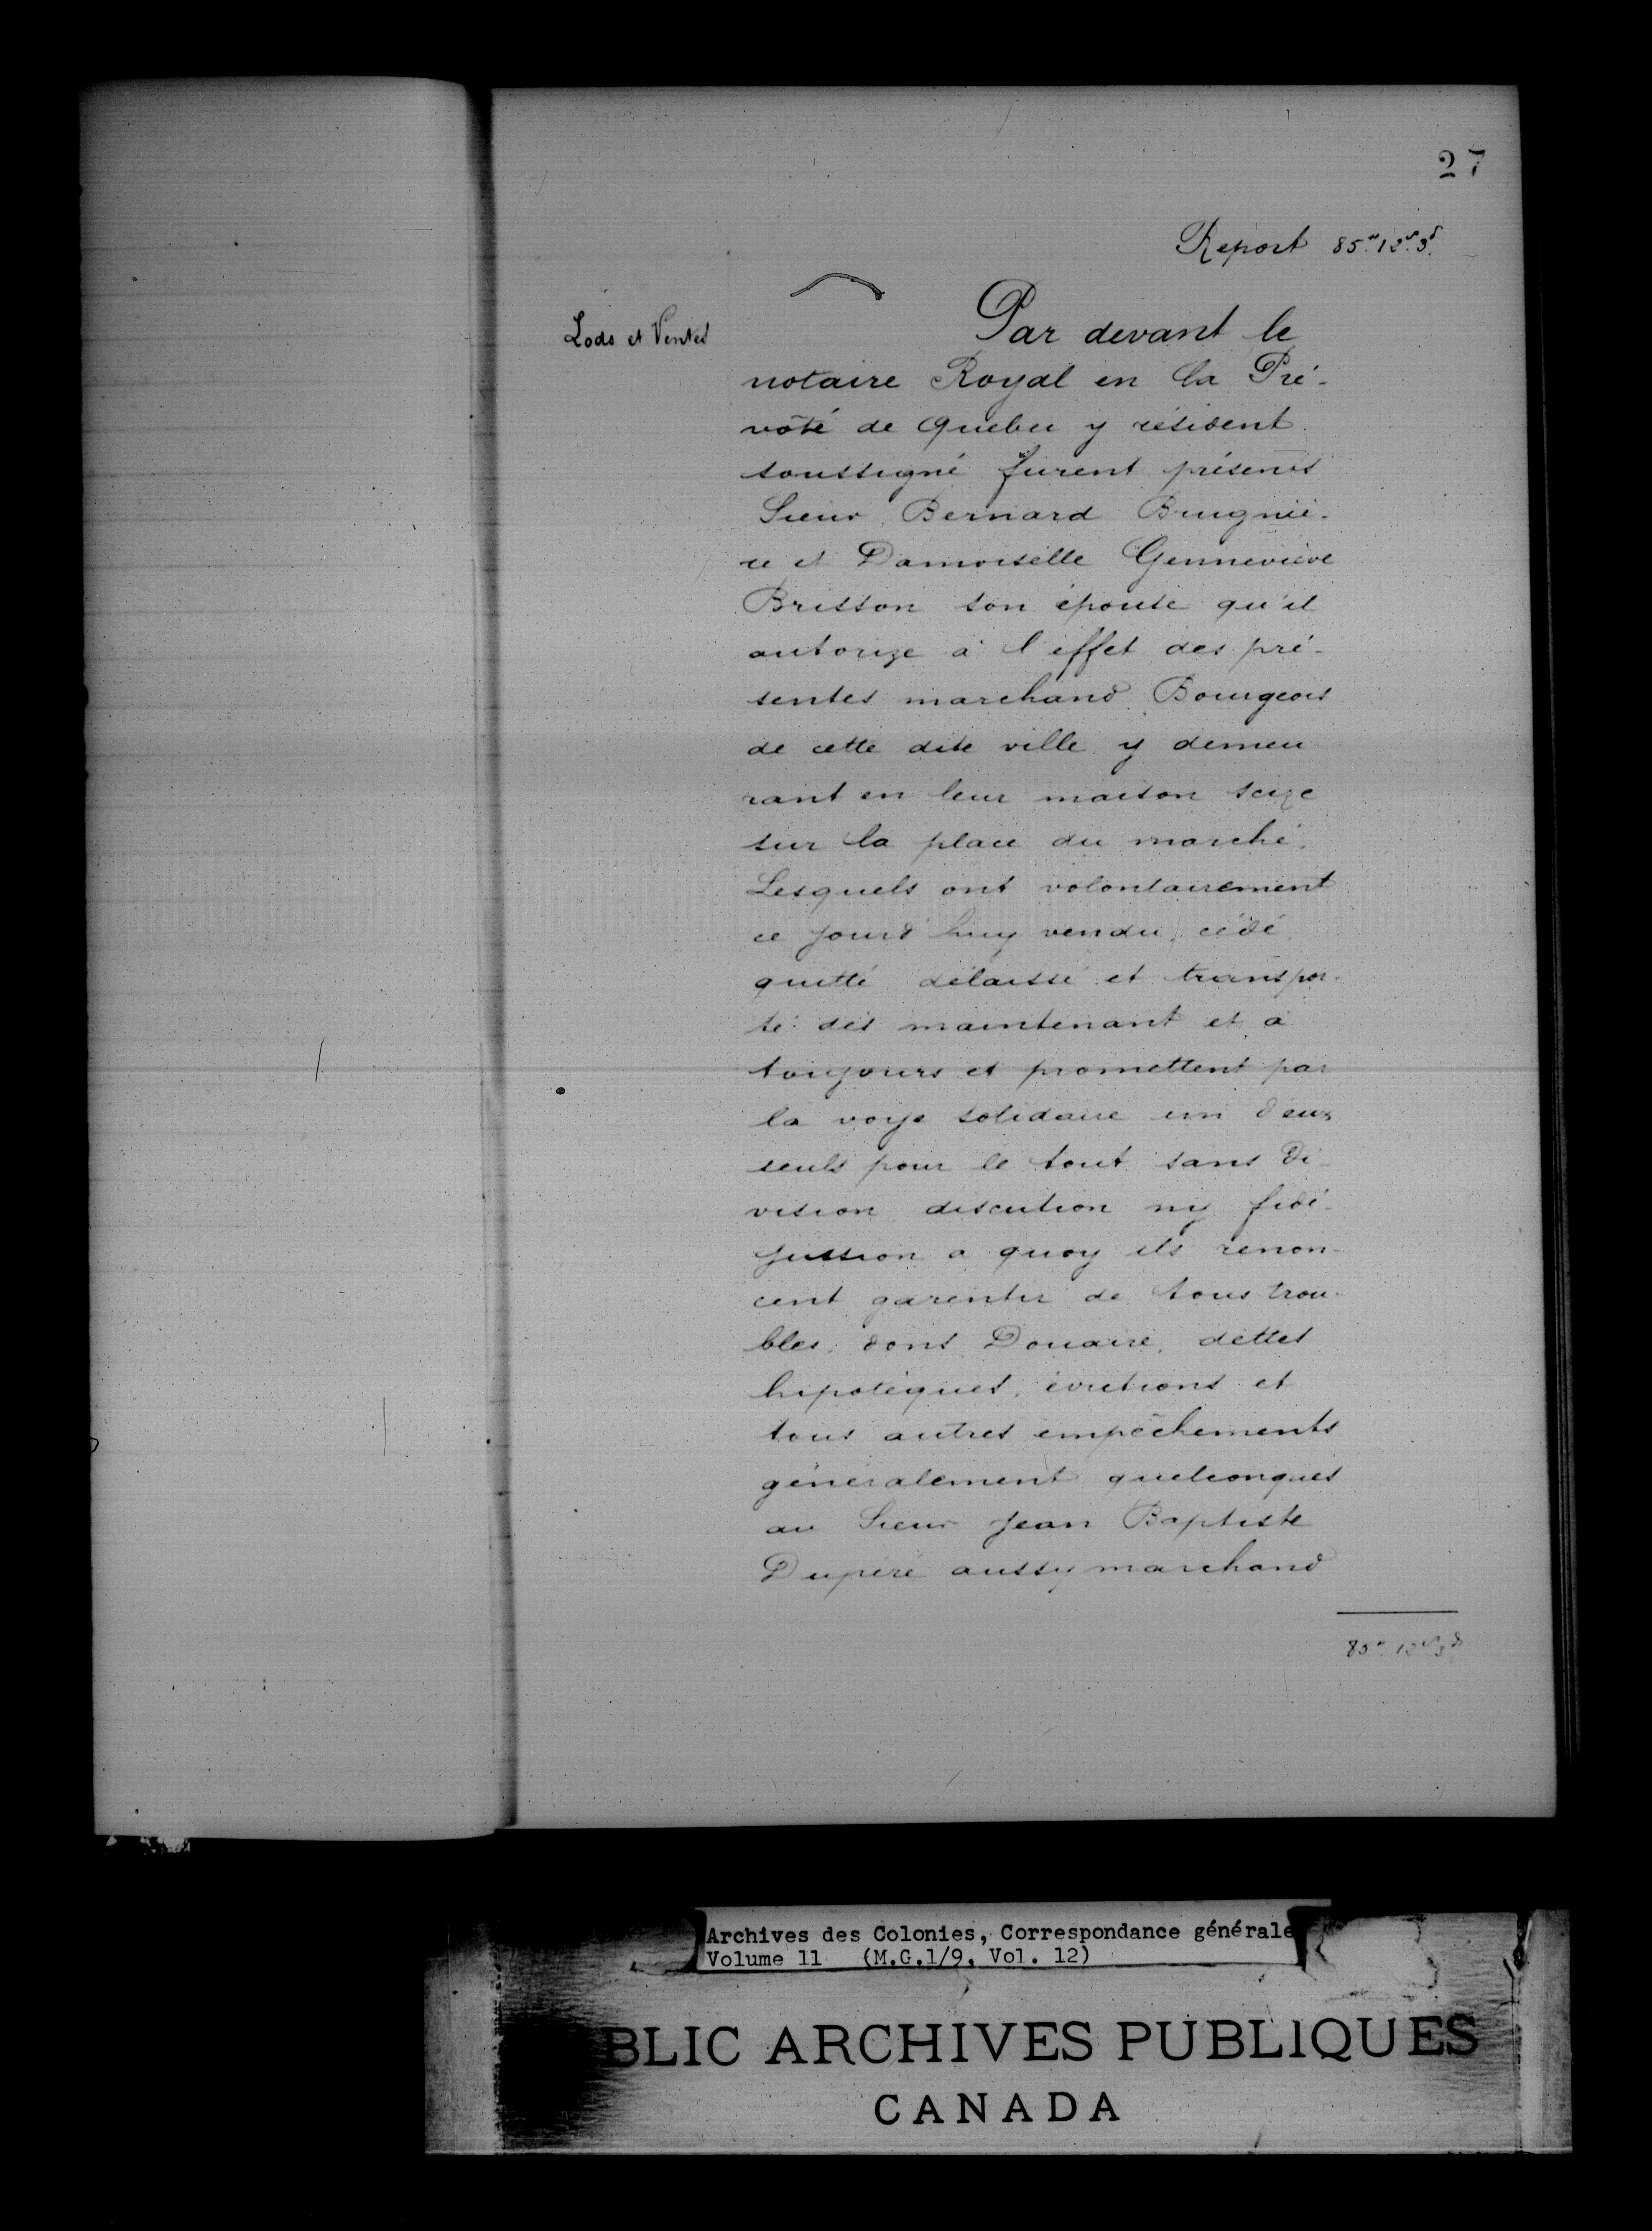 27
Report 85.# 12.s 3.d
Lods et Ventes
Par devant le
notaire Royal en la Pré-
vôté de Quebec y résident
soussigné furent présents
Sieur Bernard Brugniè-
re et Damoiselle Gennevieve
Brisson son épouse qu'il
autorize à l'effet des pré-
sentes marchand Bourgeois
de cette dite ville y demeu-
rant en leur maison seize
sur la place du marché.
Lesquels ont volontairement
ce jourd'huy vendu, cédé,
quitté délaissé et transpor-
té dès maintenant et à
toujours et promettent par
la voye solidaire un d'eux
seuls pour le tout sans di-
vision discution ny fidé-
jussion a quoy ils renon-
cent garentir de tous trou-
bles, dons Douaire, dettes
hipotèques, évictions et
tous autres empêchements
généralement quelconques
au Sieur Jean Baptiste
Duperé aussy marchand
85.# 12.s 3.d
Archives des Colonies, Correspondance générale
Volume 11 (M.G.1/9, Vol. 12)
BLIC ARCHIVES PUBLIQUES
CANADA